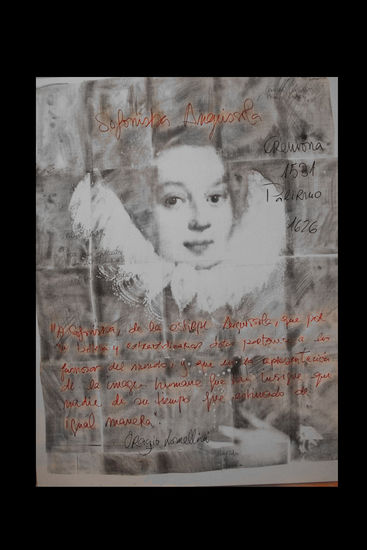 Sofonisba Anguissola
Cremona
1531
Palermo
1626
"A Sofonisba, de la estirpe Anguissola, que por
y extraordinarias dotes pertenece a las
famosas del mundo, y que en la representación
de la imagen humana fue tan insigne que
nadie de su tiempo fue estimado de
igual manera.
Oragio Lomellini